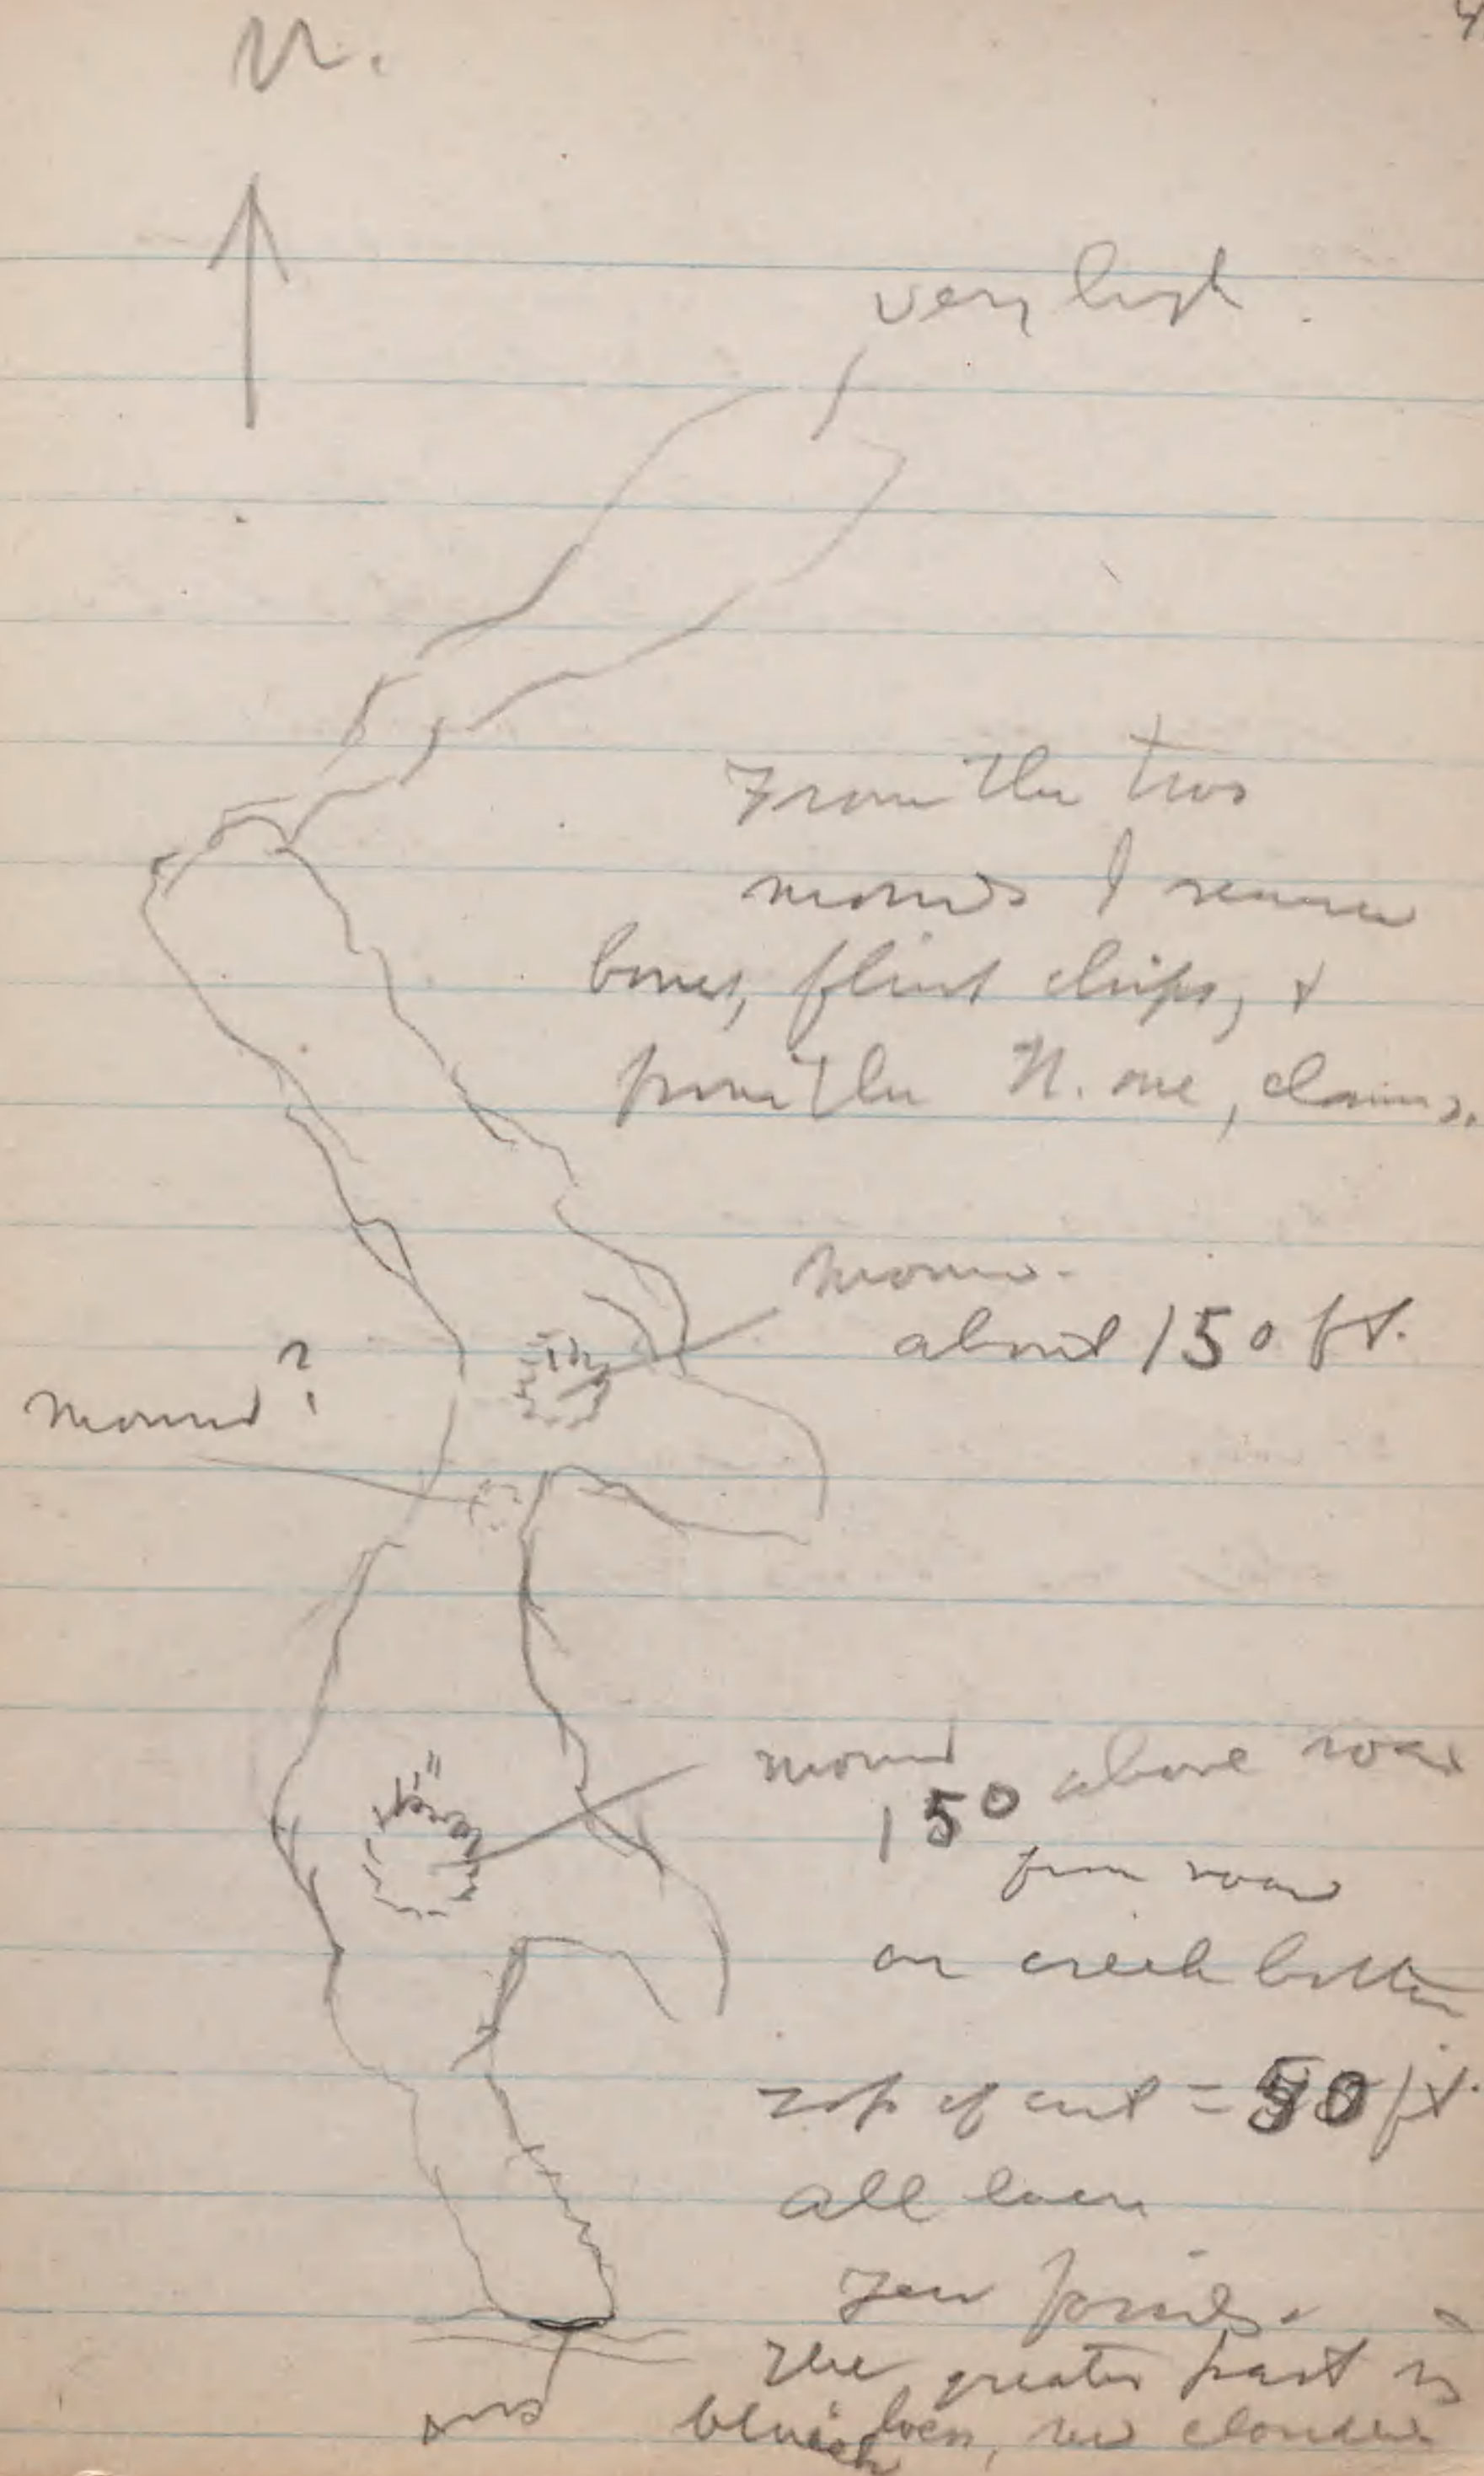 4
N.
very high.
From the two
mounds I
bones, flint chips, &
from the N. one, clams.
mound
about 150 ft.
mound?
mound
150 above road
from road
on creek bottom
top of cut = 50 ft.
all loess
Few fossils.
The greater part is
bluish loess,